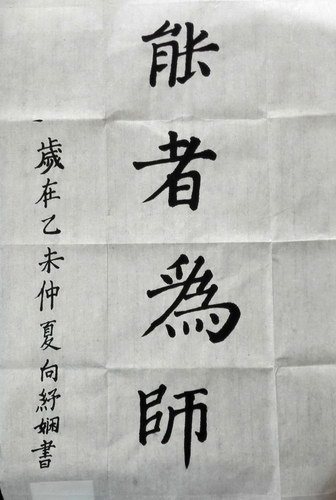 能者為師
歲在乙未仲夏向紓嫻書